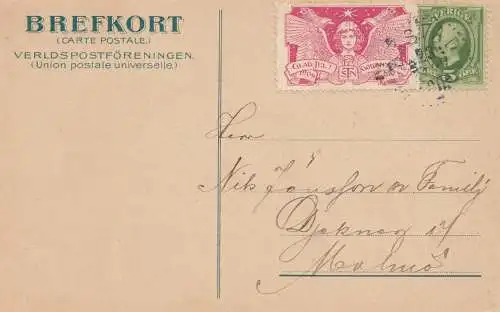 BREFKORT
(CARTE POSTALE.)
VERLDSPOSTFÖRENINGEN.
(Union postale universelle.)
GLAD JUL!
SVERIGE
5
Herr
Nils Jönsson o Familj
Djeknag
Malmö